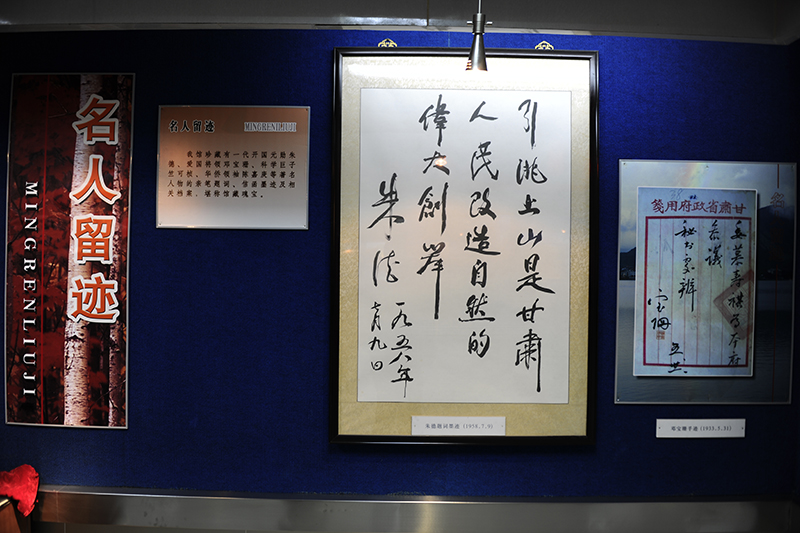 名人留迹
MINGRENLIUJI
名人留迹 MINGRENLIUJI
我馆珍藏有一代开国元勋朱
德、爱国将领邓宝珊、科学巨子
竺可桢、华侨领袖陈嘉庚等著名
人物的亲笔题词、信函墨迹及相
关档案，堪称馆藏瑰宝。
引洮上山是甘肅
人民改造自然的
偉大創舉
朱德
一九五八年
七月九日
朱德题词墨迹 (1958.7.9)
甘肅省政府用箋
慕壽祺為本府
參議
秘书处辦
宝珊
邓宝珊手迹